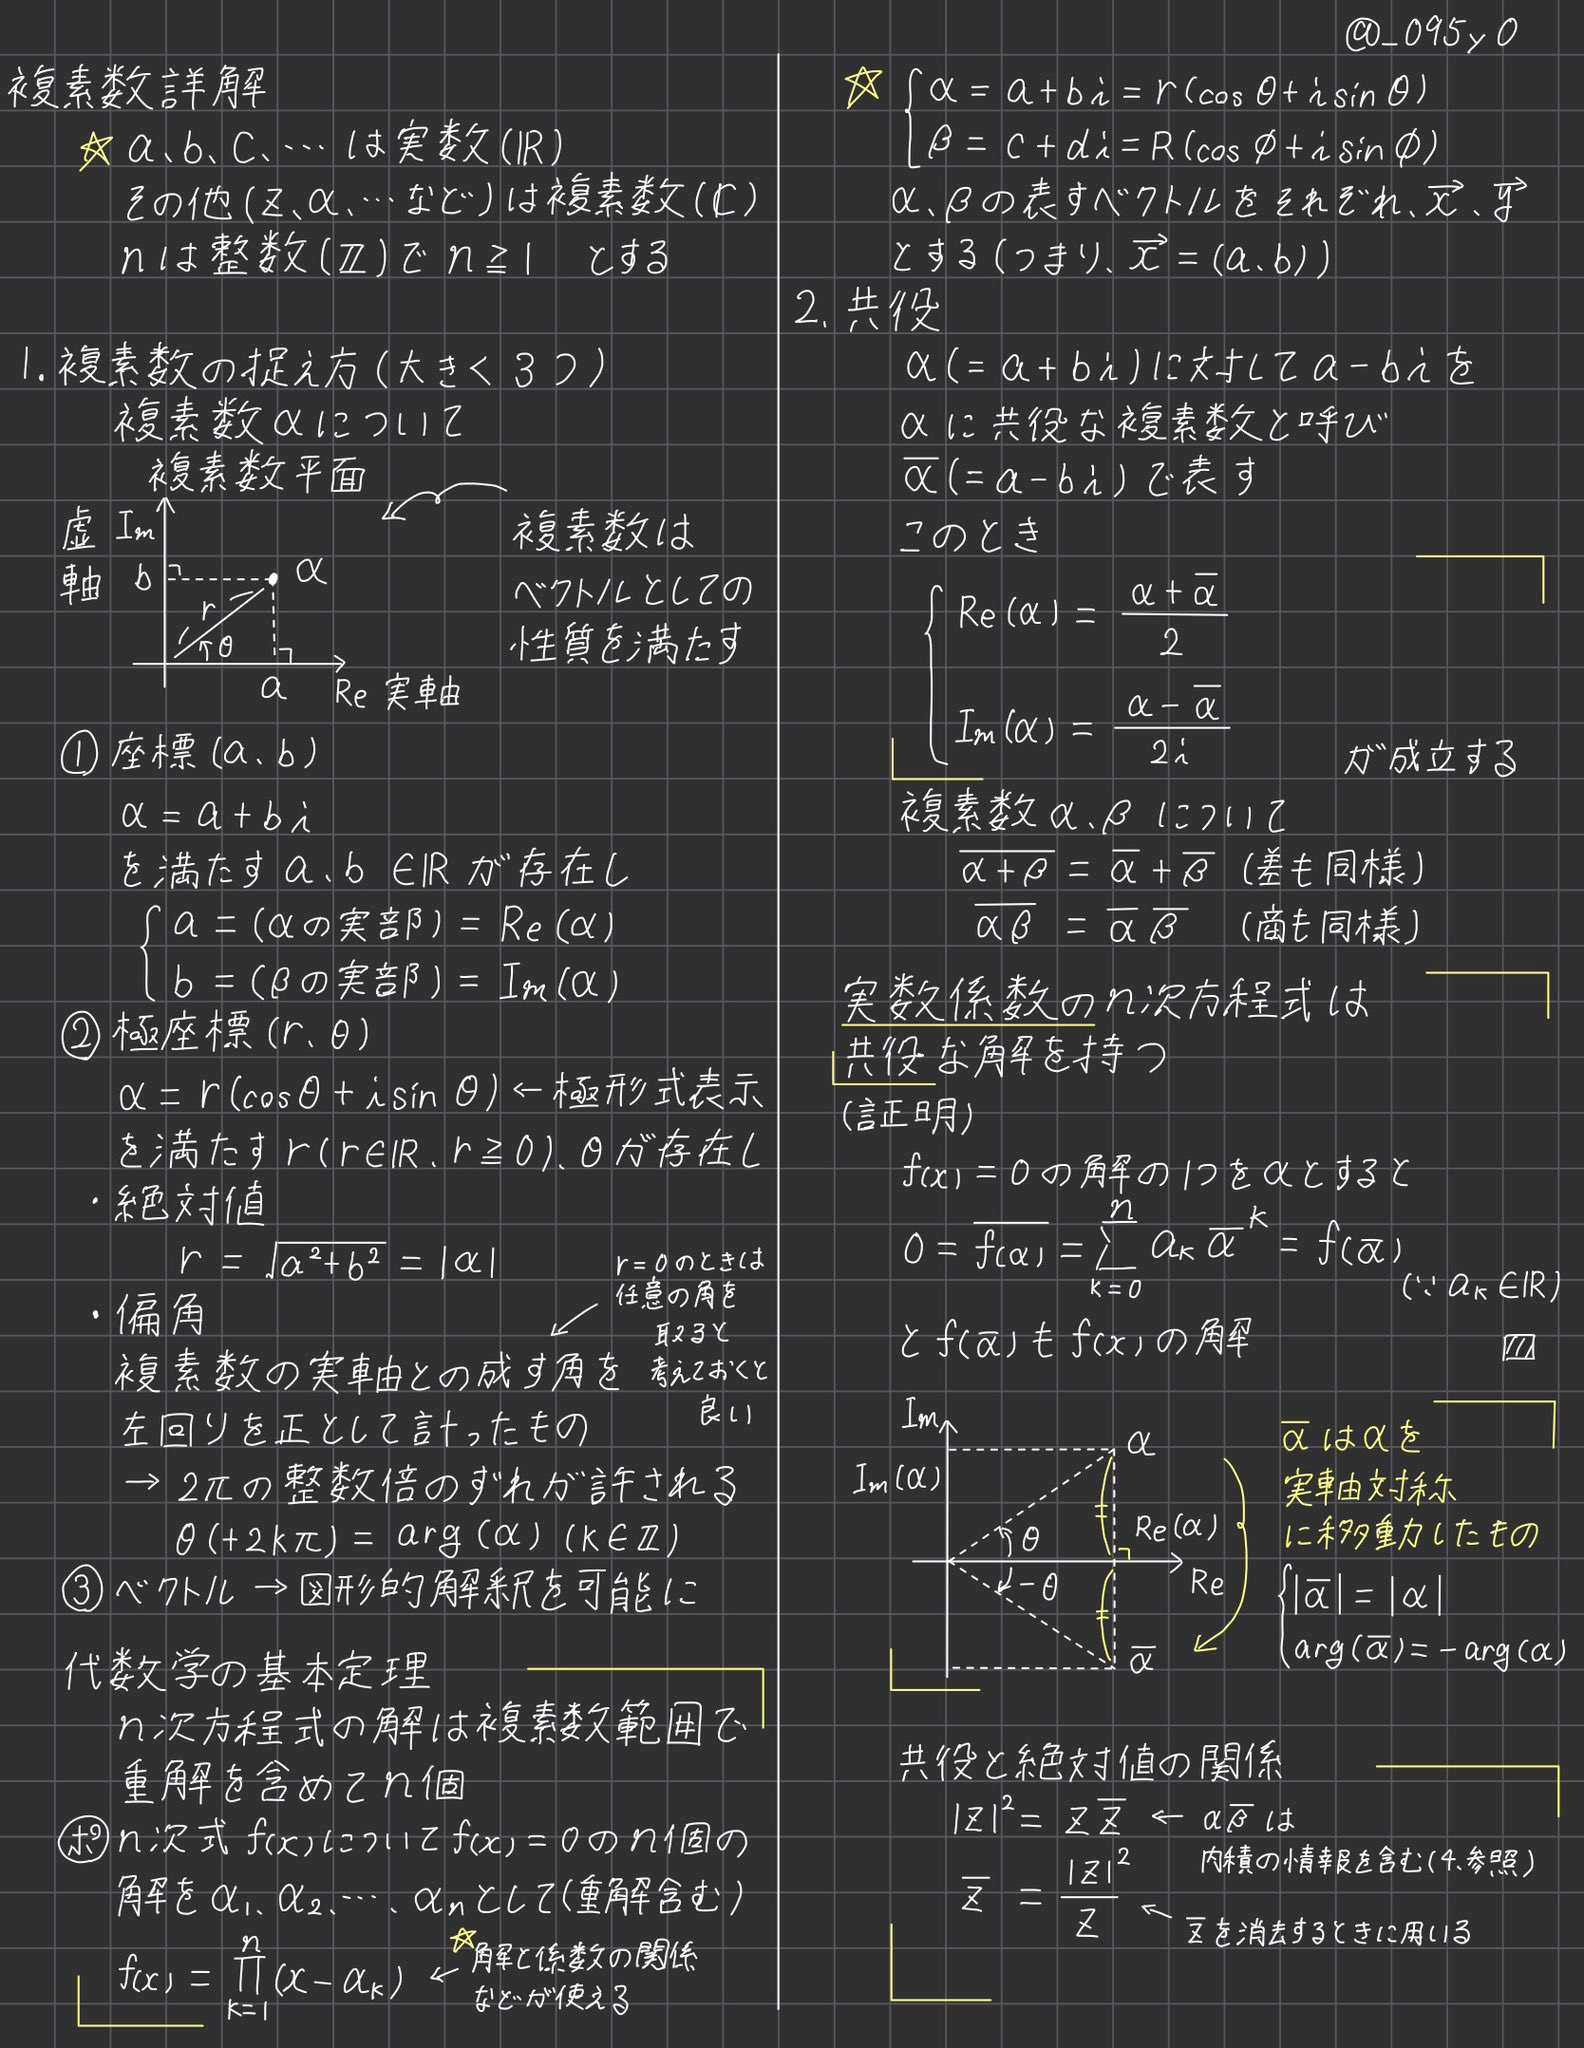 @_095y0
複素数詳解
☆ a、b、c、… は実数(ℝ)
その他(z、α、…など)は複素数(ℂ)
nは整数(ℤ)で n≧1 とする
1. 複素数の捉え方(大きく3つ)
複素数αについて
複素数平面
虚軸 Im
b α
r
θ
a Re 実軸
複素数は
ベクトルとしての
性質を満たす
① 座標(a、b)
α = a+bi
を満たす a、b ∈ℝ が存在し
{ a = (αの実部) = Re(α)
b = (βの実部) = Im(α)
② 極座標(r、θ)
α = r(cosθ + i sin θ) ← 極形式表示
を満たす r(r∈ℝ、r≧0)、θが存在し
・絶対値
r = √(a²+b²) = |α|
・偏角
r=0のときは
任意の角を
取ると
考えておくと
良い
複素数の実軸との成す角を
左回りを正として計ったもの
→ 2πの整数倍のずれが許される
θ(+2kπ) = arg(α) (k∈ℤ)
③ ベクトル → 図形的解釈を可能に
代数学の基本定理
n次方程式の解は複素数範囲で
重解を含めてn個
ポ n次式 f(x)について f(x)=0のn個の
解を α₁、α₂、…、αₙとして(重解含む)
f(x) = ∏_{k=1}^{n} (x-α_k) ← ☆ 解と係数の関係
などが使える
☆ { α = a+bi = r(cos θ+i sin θ)
β = c+di = R(cos φ+i sin φ)
α、βの表すベクトルをそれぞれ、x⃗、y⃗
とする(つまり、x⃗ = (a、b))
2. 共役
α(= a+bi)に対して a-bi を
αに共役な複素数と呼び
α̅(= a-bi)で表す
このとき
{ Re(α) = (α+α̅)/2
Im(α) = (α-α̅)/2i が成立する
複素数 α、β について
\overline{α+β} = α̅+β̅ (差も同様)
\overline{αβ} = α̅ β̅ (商も同様)
実数係数のn次方程式は
共役な解を持つ
(証明)
f(x)=0の解の1つをαとすると
0 = \overline{f(α)} = ∑_{k=0}^{n} a_k α̅^k = f(α̅)
(∵ a_k∈ℝ)
と f(α̅)も f(x)の解
Im
α
Im(α)
θ
Re(α)
Re
-θ
α̅
α̅ は αを
実軸対称
に移動したもの
{ |α̅| = |α|
arg(α̅) = -arg(α)
共役と絶対値の関係
|z|² = z z̅ ← αβ̅ は
内積の情報を含む(4.参照)
z̅ = |z|²/z ← z̅を消去するときに用いる